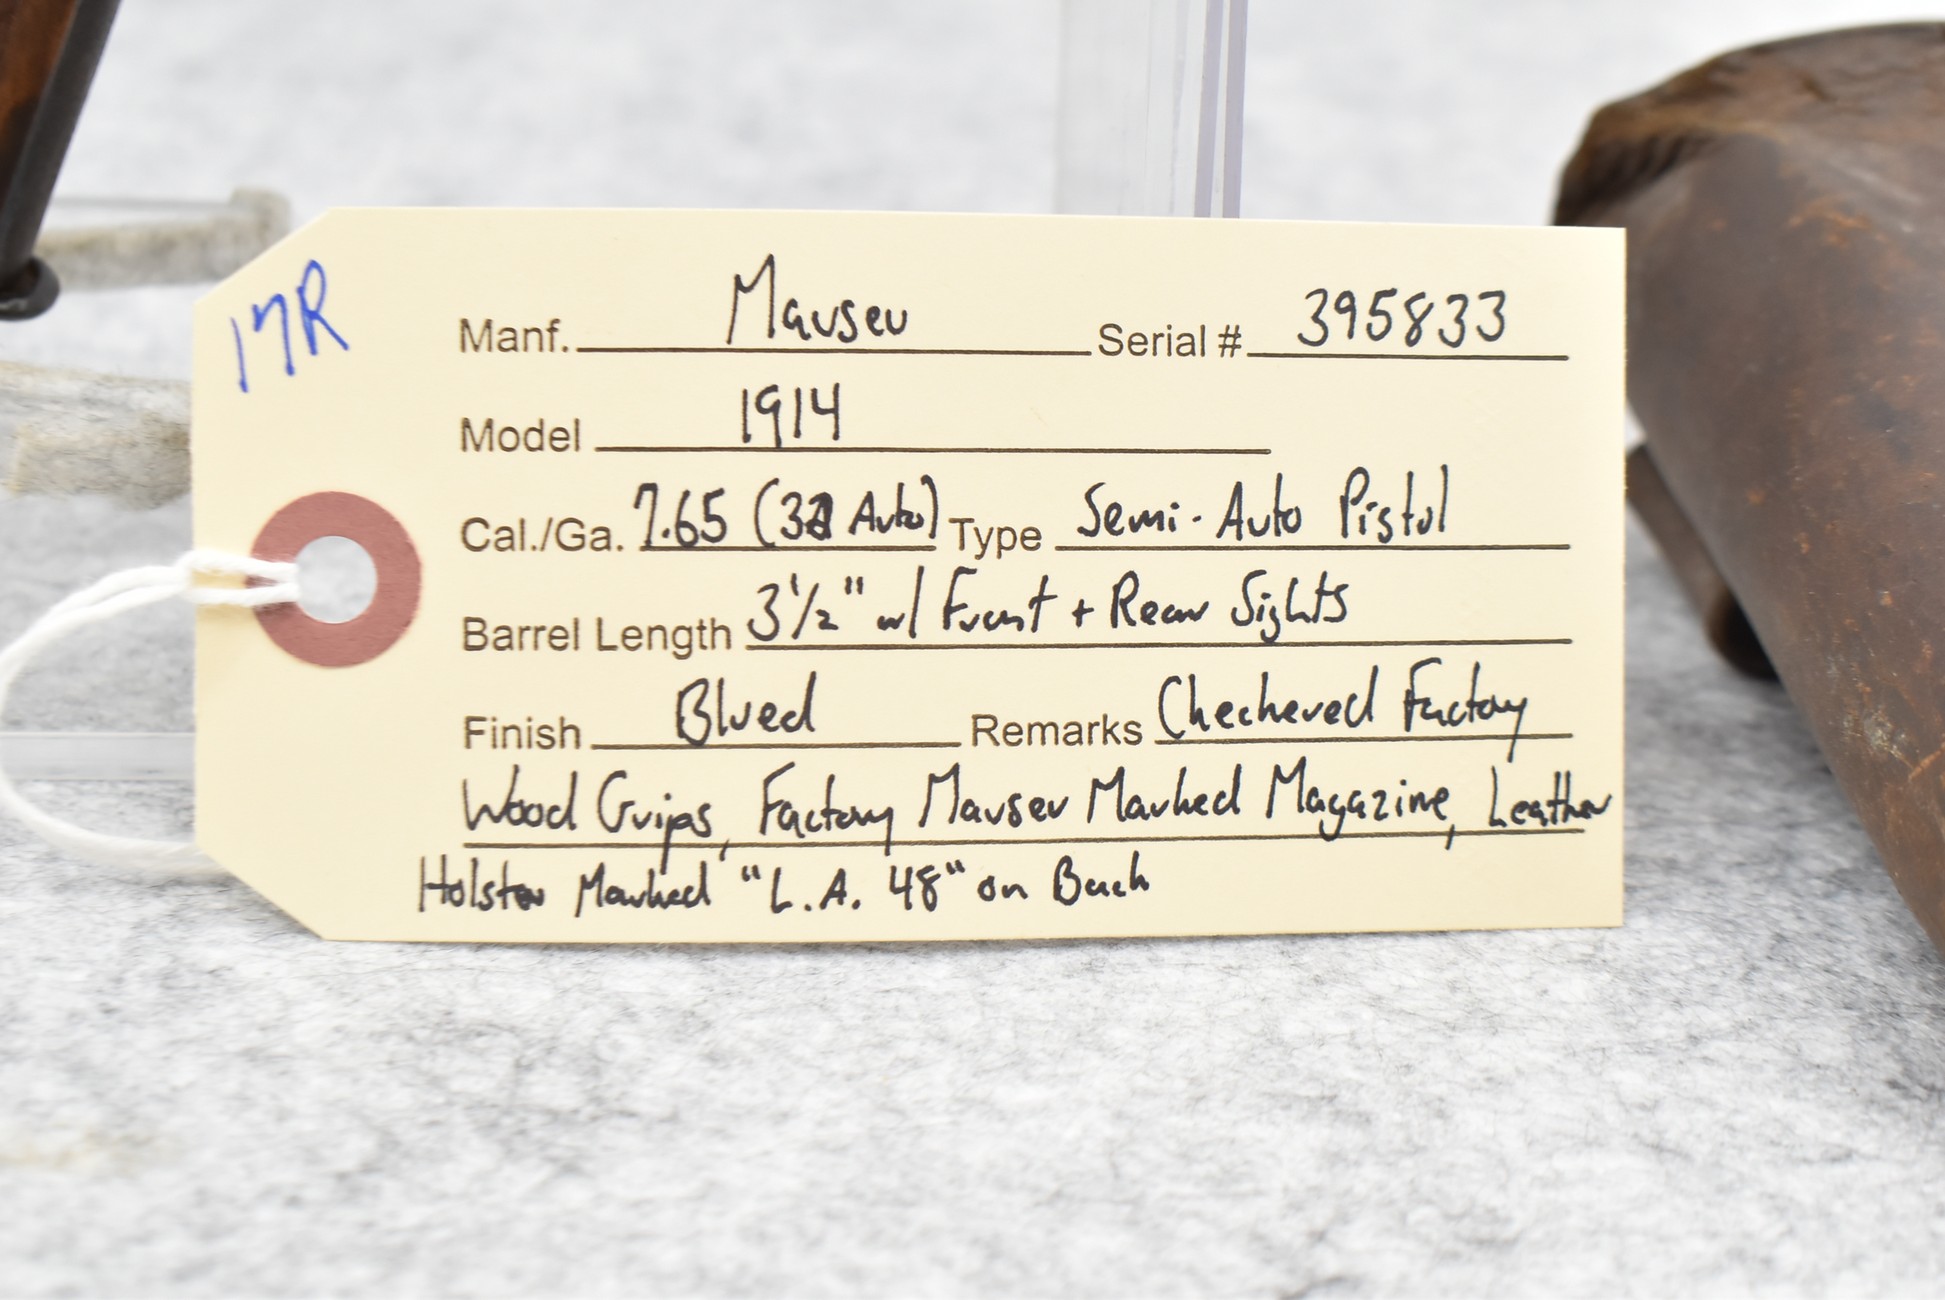 17R
Manf. Mauser Serial # 395833
Model 1914
Cal./Ga. 7.65 (32 Auto) Type Semi-Auto Pistol
Barrel Length 3 1/2" w/ Front + Rear Sights
Finish Blued Remarks Checkered Factory
Wood Grips, Factory Mauser Marked Magazine, Leather
Holster Marked "L.A. 48" on Back